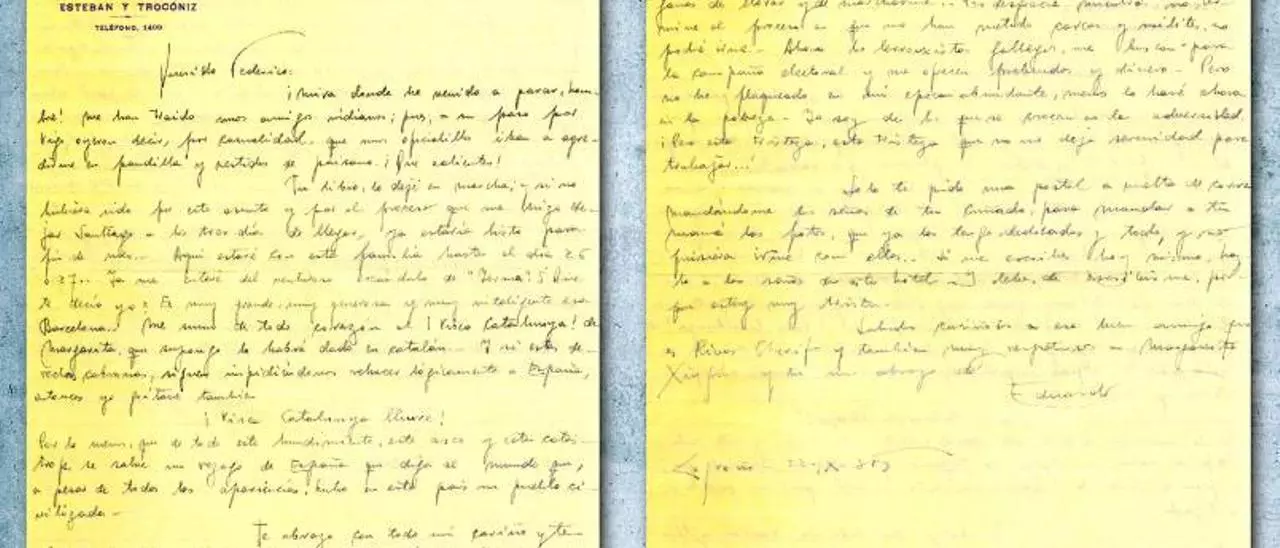 ESTEBAN Y TROCÓNIZ
TELÉFONO, 1400
Querido Federico:
¡Mira donde he venido a parar, hom-
bre! Me han traido unos amigos indianos; pues, a su paso por
Vigo oyeron decir, por casualidad, que unos oficialillos iban a agre-
dirme en pandilla y vestidos de paisano. ¡Que valientes!
Tu libro, lo dejé en marcha; y si no
hubiera sido por este asunto y por el proceso que me obligó de-
jar Santiago a los tres días de llegar, ya estaría listo para
fin de mes.. Aquí estaré con esta familia hasta el día 26
o 27.. Ya me enteré del escándalo de "Yerma" ¿Que
te decía yo? Es muy grande, muy generosa y muy inteligente esa
Barcelona. Me uno de todo corazón al ¡Visca Catalunya! de
Margarita, que supongo lo habrá dado en catalán. Y si estas de-
rechas, siguen impidiéndonos rehacer lógicamente a España,
entonces yo gritaré también
¡Visca Catalunya lliure!
Por lo menos, que de todo este hundimiento, este asco y esta catás-
trofe se salve un de España que diga al mundo que,
a pesar de todas las apariencias, hubo en este país un pueblo ci-
vilizado-
Te abraza con todo mi cariño y
ganas de llorar y de marcharme..
mine el proceso en que me han metido, no
podré irme.- Ahora los lerrouxistas gallegos, me buscan para
la campaña electoral y me ofrecen y dinero- Pero
no he flaqueado en mi época abundante, menos lo haré ahora
en la pobreza- Yo soy de los que se crecen en la adversidad.
¡Pero esta tristeza, esta tristeza que no me deja serenidad para
trabajar..!
Solo te pido una postal a vuelta de correo
mandándome las señas de tu cuñado, para mandar a tu
mamá las fotos, que ya las tengo dedicadas y todo, y no
quisiera irme con ellas.. Si me escribes hoy mismo, haz-
lo a las señas de este hotel- Y debes de escribirme, por-
que estoy muy triste.
Saludos cariñosos a ese buen amigo que
es Rivas Cherif y también muy respetuosos a Margarita
Xirgu y un abrazo de
Eduardo